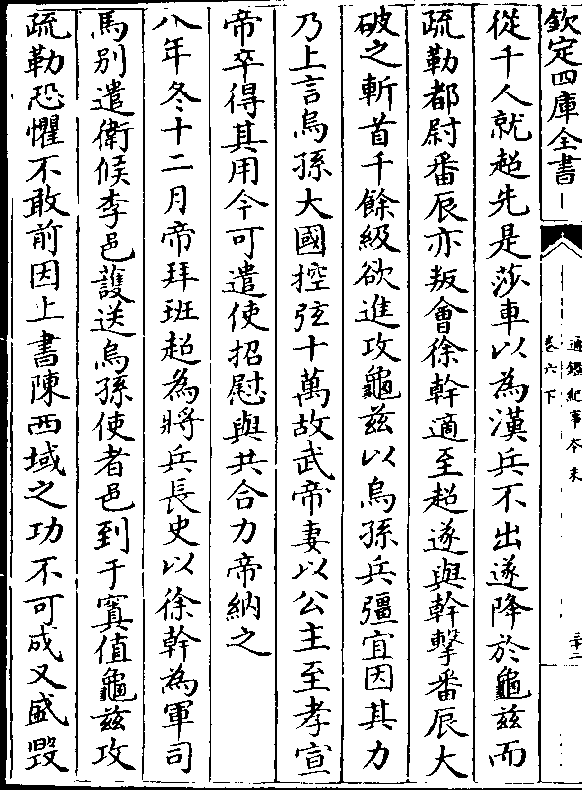 欽定四庫全書
通鑑紀事本末
卷六下
從千人就超先是莎車以為漢兵不出遂降於龜兹而
疏勒都尉番辰亦叛會徐幹適至超遂與幹擊番辰大
破之斬首千餘級欲進攻龜兹以烏孫兵彊宜因其力
乃上言烏孫大國控弦十萬故武帝妻以公主至孝宣
帝卒得其用今可遣使招慰與共合力帝納之
八年冬十二月帝拜班超為將兵長史以徐幹為軍司
馬别遣衛候李邑護送烏孫使者邑到于寘值龜兹攻
疏勒恐懼不敢前因上書陳西域之功不可成又盛毀